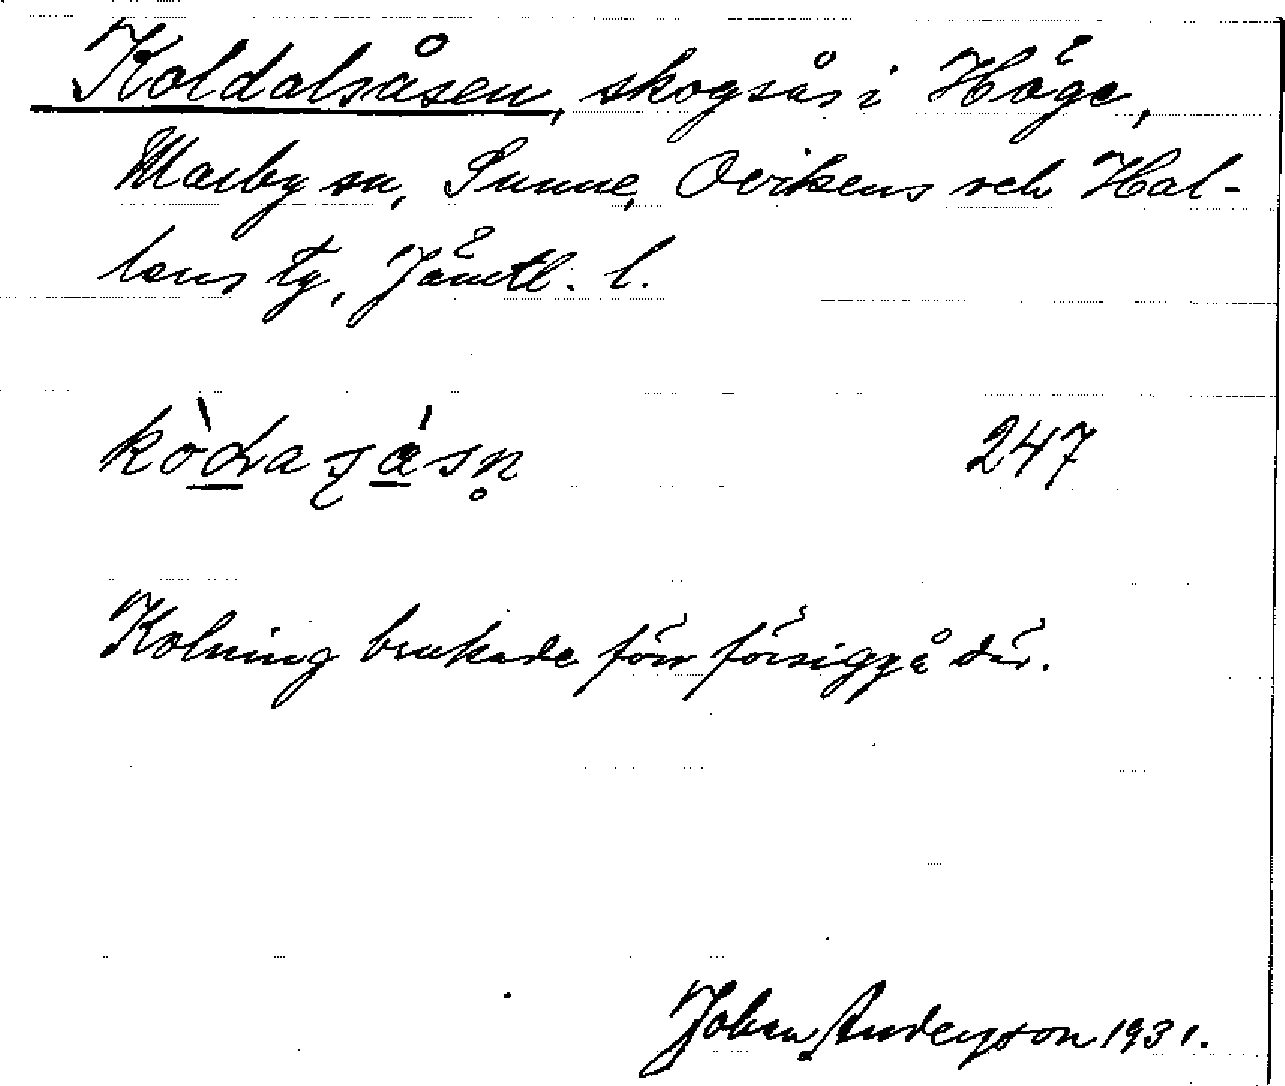 Koldalsåsen, skogsås i Höge,
Marby sn, Sunne, Ovikens och Hal-
lens tg, Jämtl. l.
247
Kolning brukade förr försiggå där.
Johan Andersson 1931.